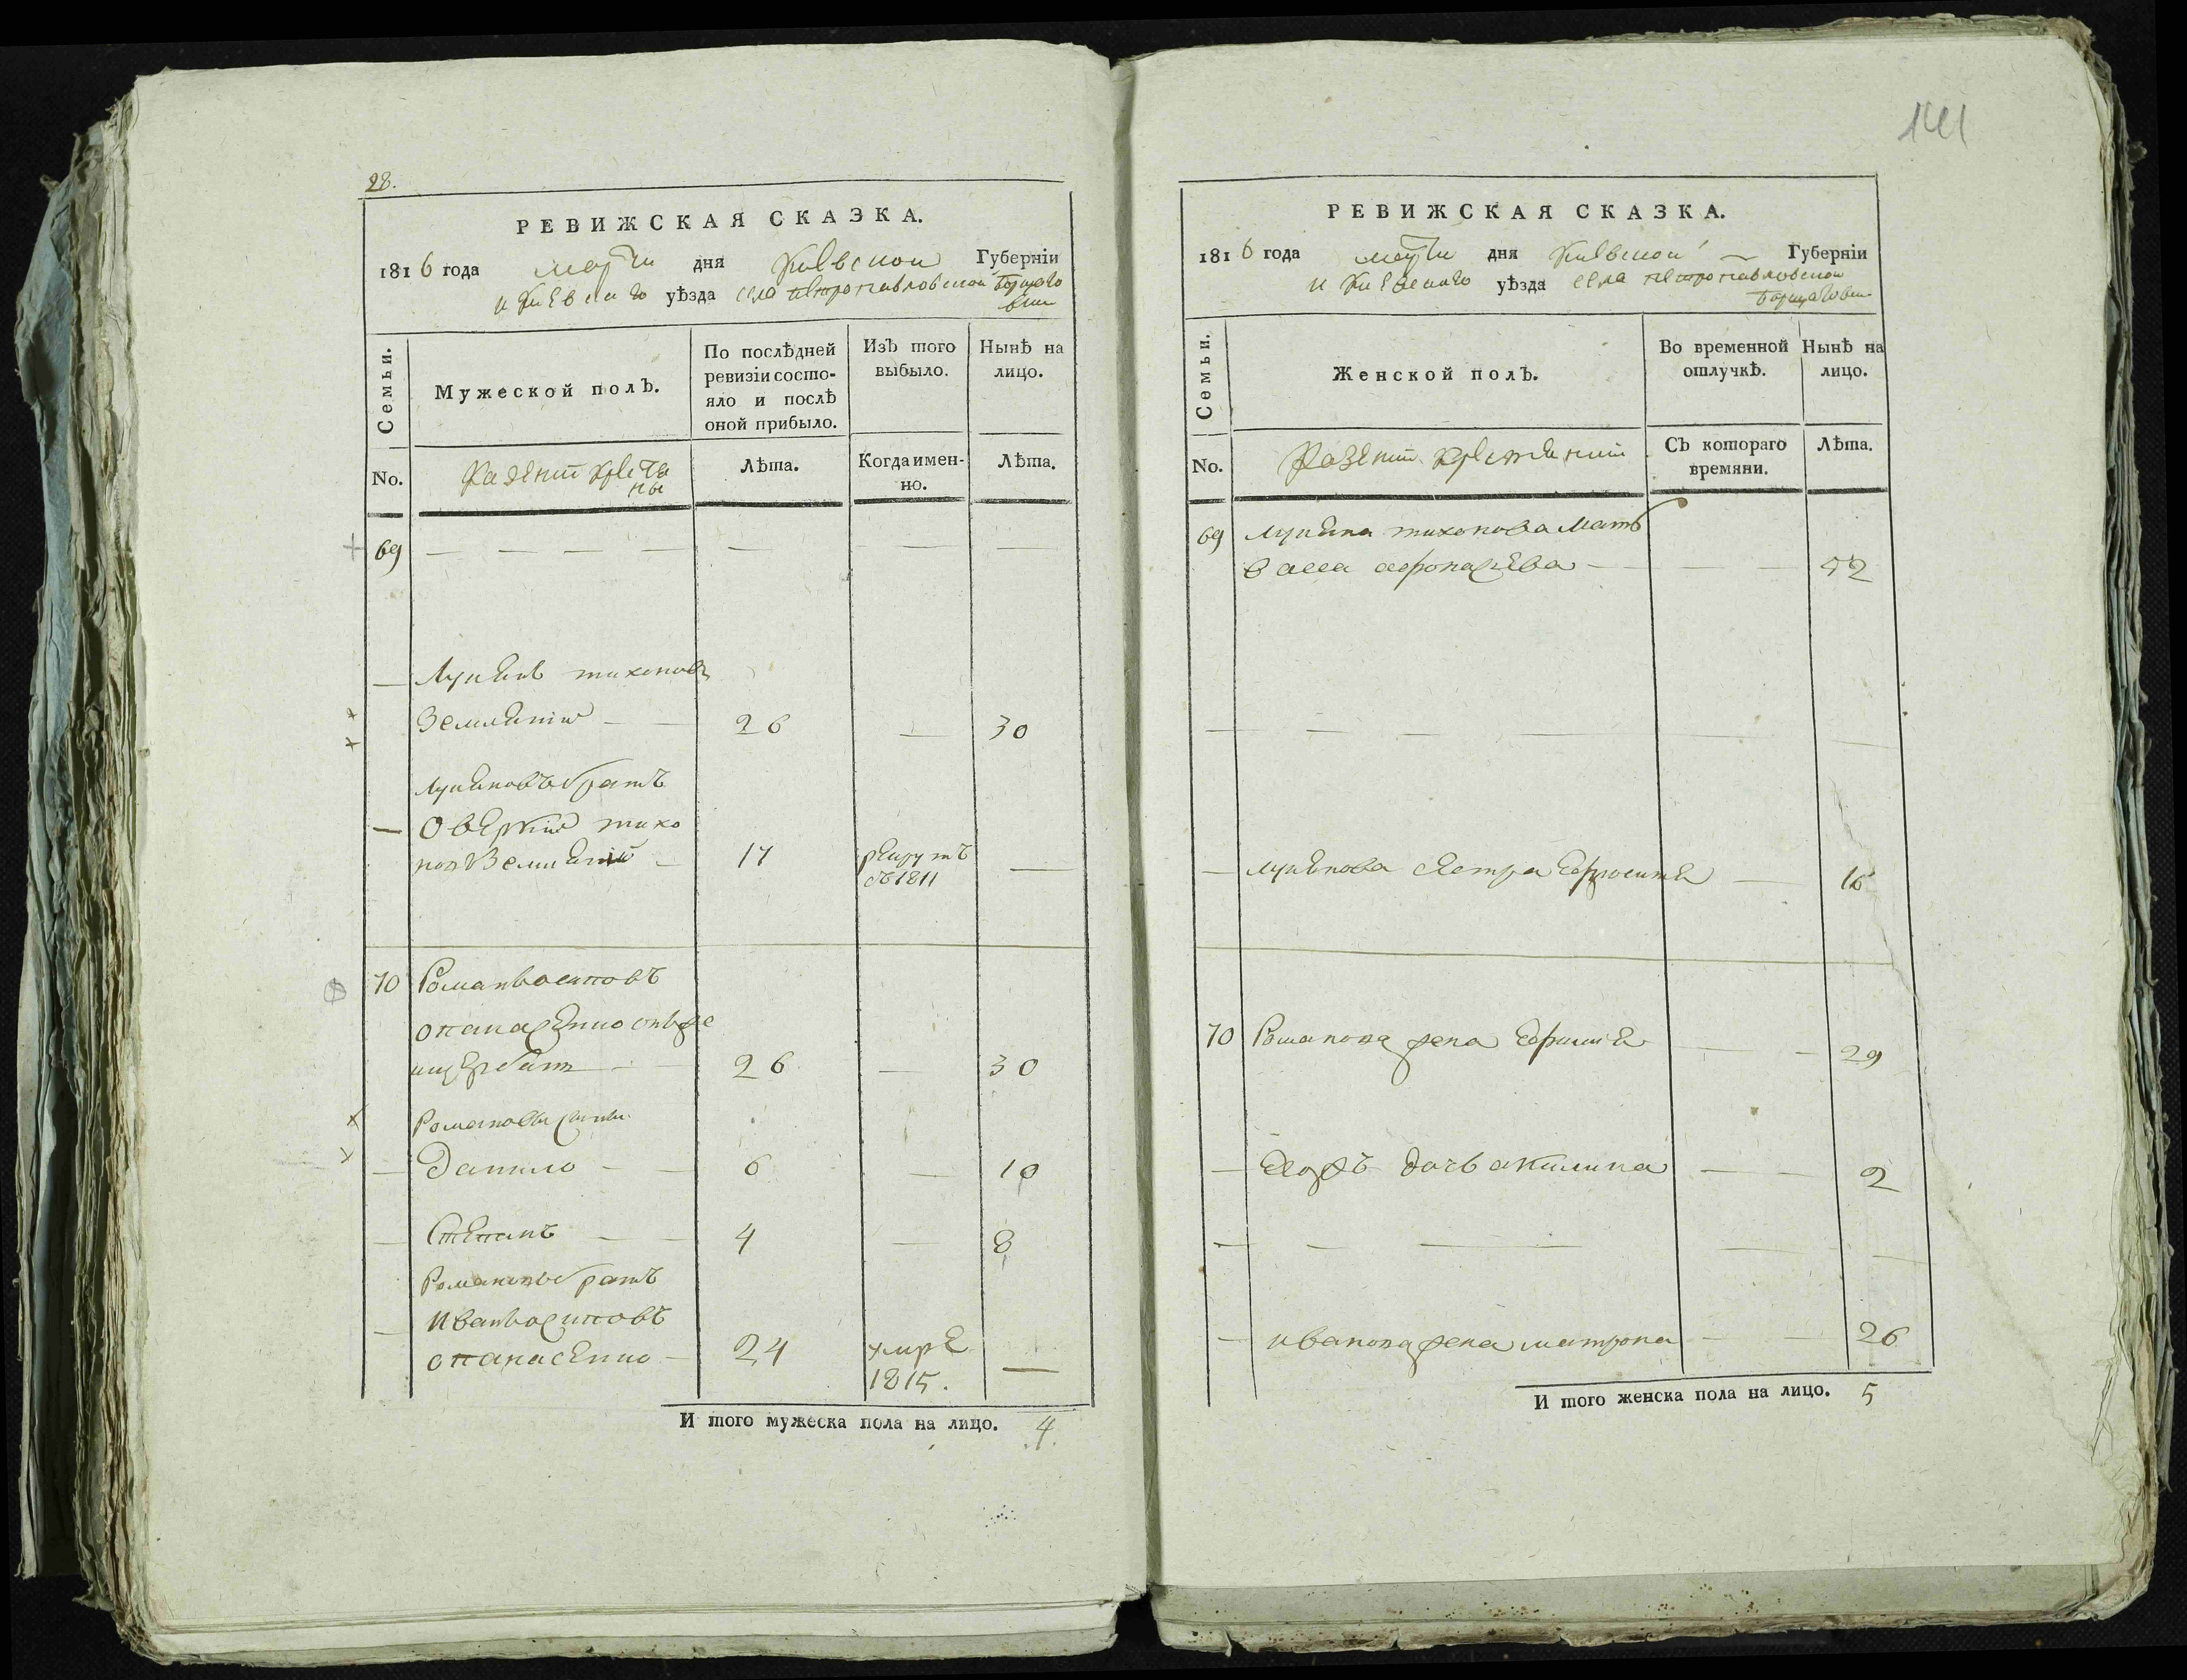 28.
РЕВИЖСКАЯ СКАЗКА.
1816 года марта дня Киевской Губерніи
и Киевскаго уѣзда села Петропавловской Борщаговки
Семьи.
Мужеской полъ.
По послѣдней ревизіи состояло и послѣ оной прибыло.
Изъ того выбыло.
Нынѣ на лицо.
No.
Казенни крестяны
Лѣта.
Когда именно.
Лѣта.
69
Лукянъ тихоновъ
Землянiй 26 30
Лукяновъ братъ
Оверкiй тихо
новъ Землянiй 17 рекрутъ
въ 1811
70 Романъ осиповъ
опанасенко онъ же
ищербань 26 30
Романовы сыны
Данило 6 10
Степанъ 4 8
Романовъ братъ
Иванъ осиповъ
опанасенко 24 умре
1815.
И того мужеска пола на лицо. 4.
141
РЕВИЖСКАЯ СКАЗКА.
1816 года марта дня Киевской Губерніи
и Киевскаго уѣзда села Петропавловской
Борщаговки
Семьи.
Женской полъ.
Во временной отлучкѣ.
Нынѣ на лицо.
No.
Казенни крестянки
Съ котораго времяни.
Лѣта.
69 Лукяна тихонова Мать
Васса афонасева 52
Лукянова сестра Ефросиня 16
70 Романова жена Ефимия 29
Ихъ дочь акилина 2
иванова жена матрона 26
И того женска пола на лицо. 5